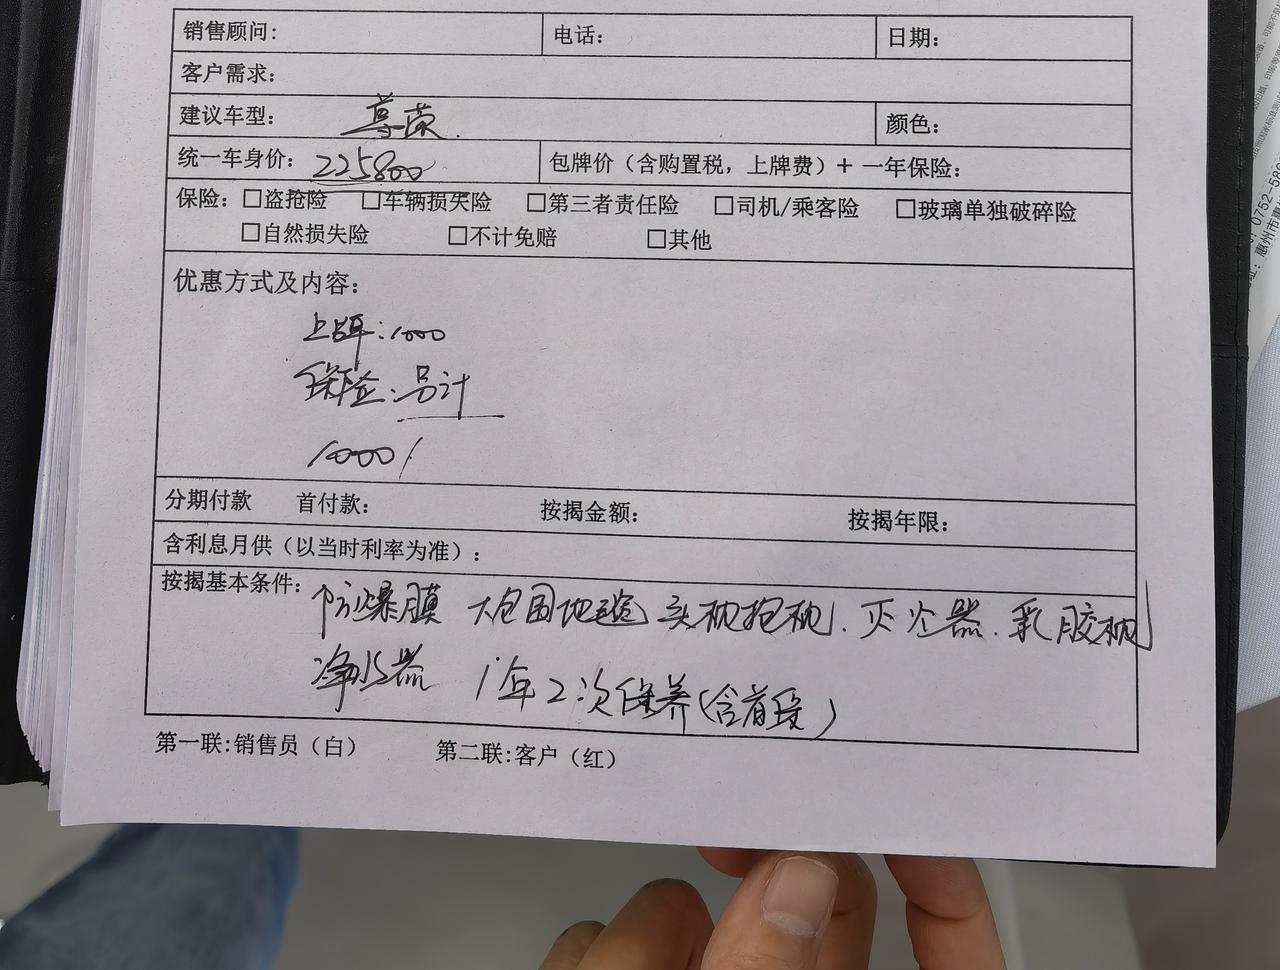 销售顾问: 电话: 日期:
客户需求:
建议车型: 尊荣. 颜色:
统一车身价: 225800 包牌价（含购置税，上牌费）+ 一年保险:
保险: □盗抢险 □车辆损失险 □第三者责任险 □司机/乘客险 □玻璃单独破碎险
□自然损失险 □不计免赔 □其他
优惠方式及内容:
上牌:1000
保险:另计
10000/
分期付款 首付款: 按揭金额: 按揭年限:
含利息月供（以当时利率为准）:
按揭基本条件: 防爆膜 大包围地毯 头枕抱枕. 灭火器. 乳胶枕
净水器 1年2次保养(含首保)
第一联:销售员（白） 第二联:客户（红）
0752-586